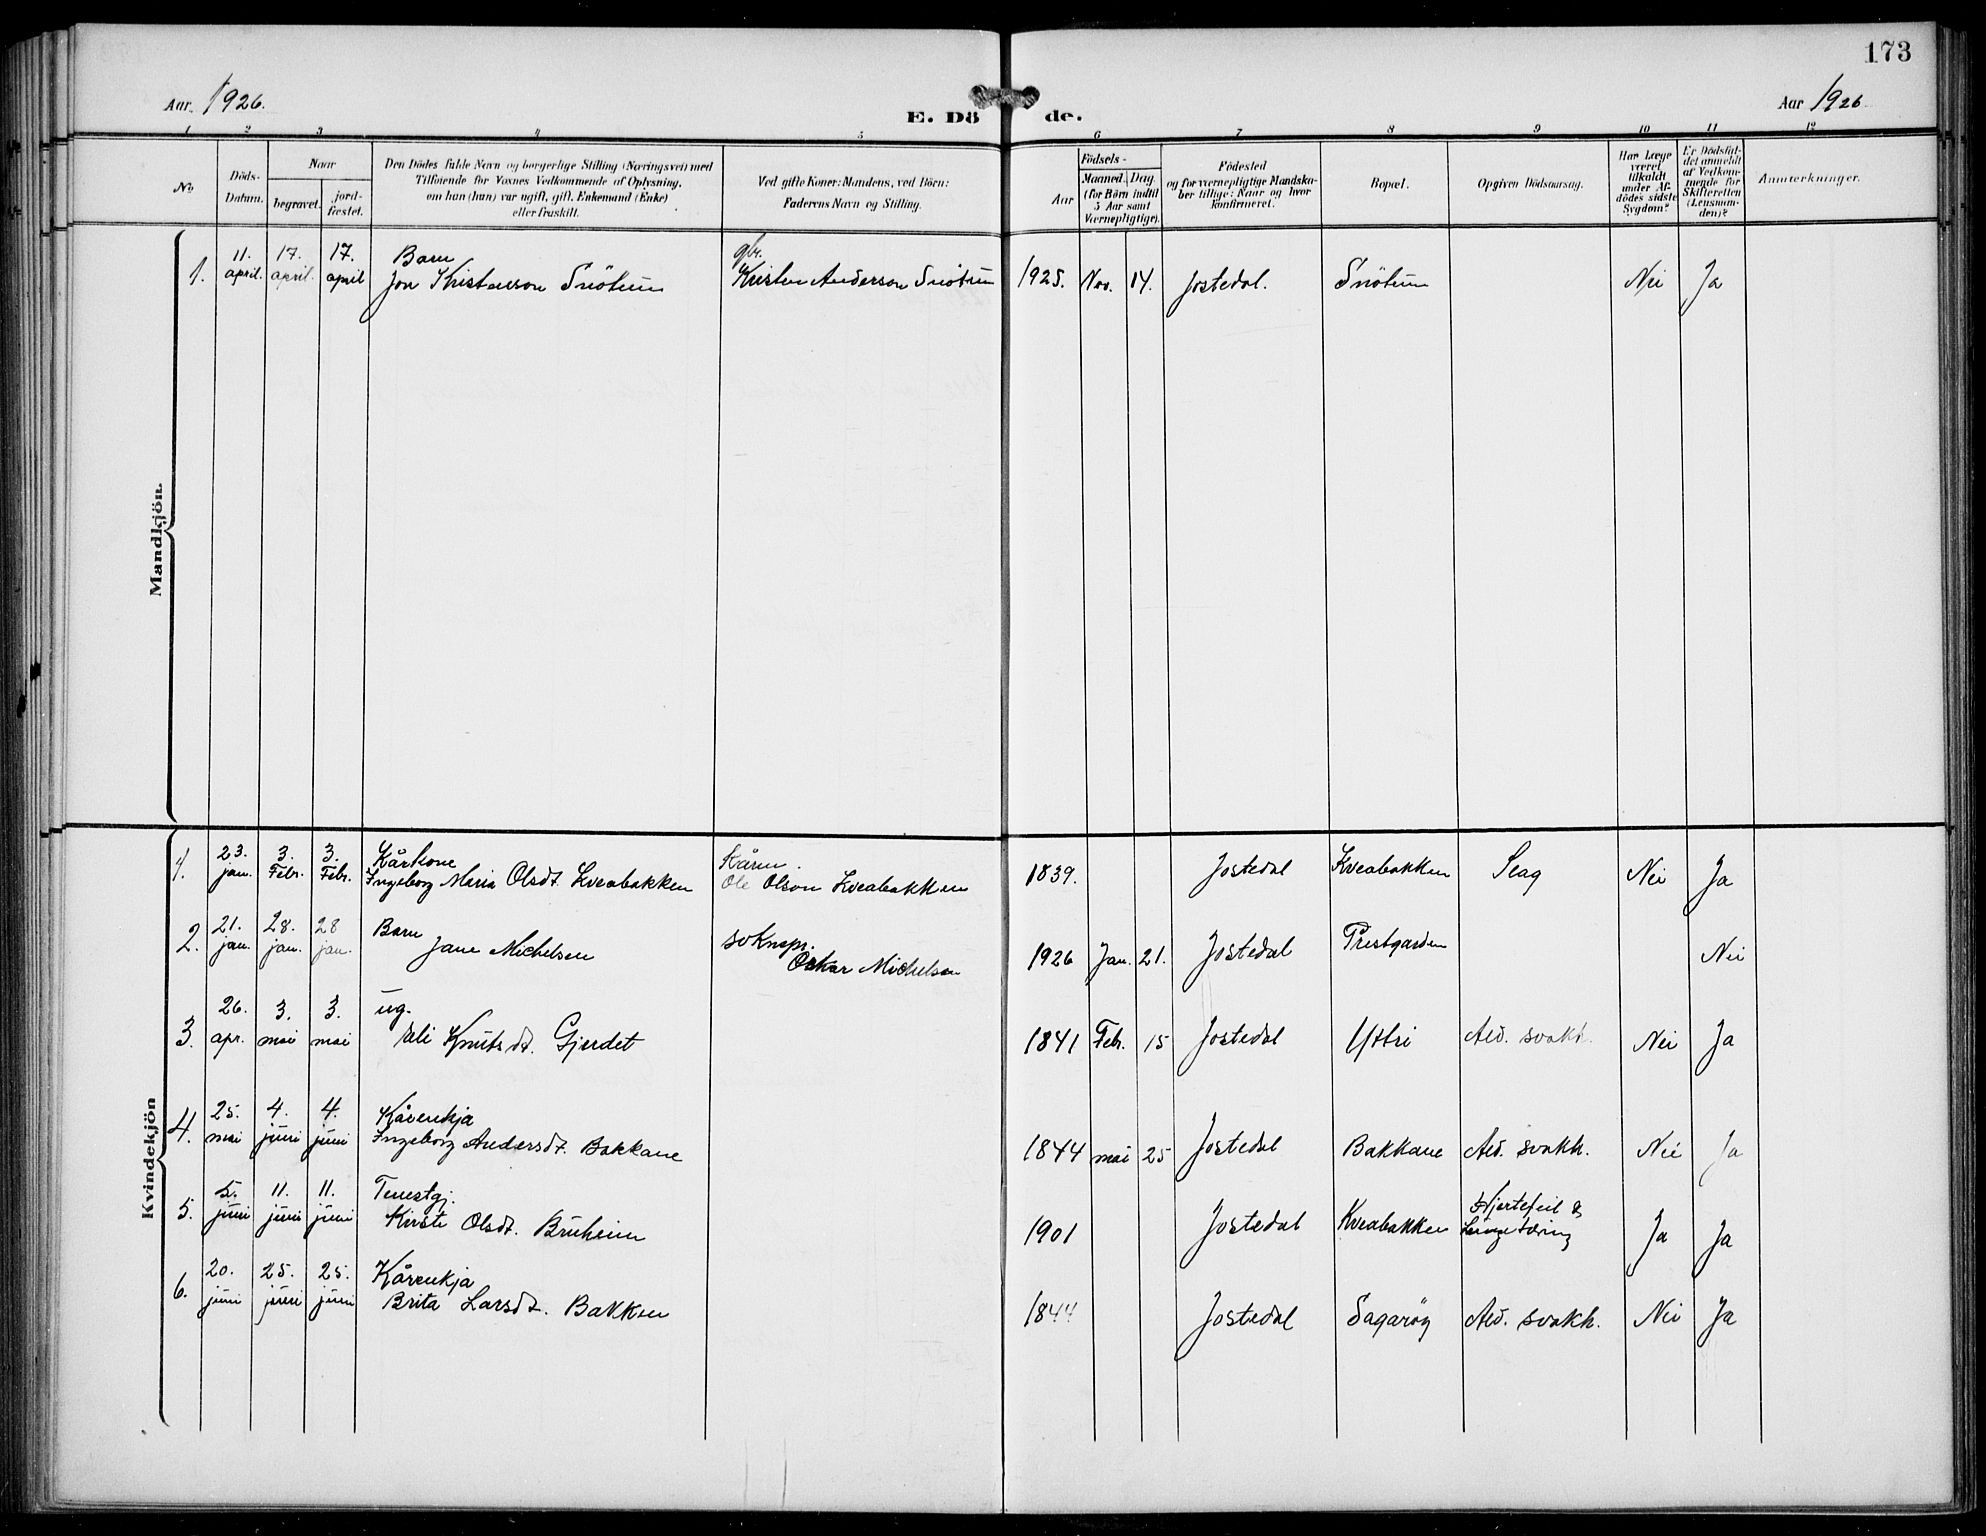 173
Aar 1926.
E. Döde.
Aar 1926
1 2 3 4 5 6 7 8 9 10 11 12
No
Döds-Datum.
Naar
begravet.
jord-fæstet.
Den Dödes fulde Navn og borgerlige Stilling (Næringsvei) med
Tilföiende for Voxnes Vedkommende af Oplysning,
om han (hun) var ugift, gift, Enkemand (Enke)
eller fraskilt.
Ved gifte Koner: Mandens, ved Börn:
Faderens Navn og Stilling.
Födsels-
Aar
Maaned. Dag
(for Börn indtil
5 Aar samt
Værnepligtige).
Födested
og for værnepligtige Mandska-
ber tillige: Naar og hvor
konfirmeret.
Bopæl.
Opgiven Dödsaarsag.
Har Læge
været
tilkaldt
under Af-
dödes sidste
Sygdom?
Er Dödsfal-
det anmeldt
af Vedkom-
mende for
Skifteretten
(Lensman-
den)?
Anmærkninger.
Mandkjön.
1. 11. april. 17. april. 17. april
Barn
Jon Kristenson Snötun
gbr.
Kristen Anderson Snötun
1925. Nov. 14. Jostedal. Snötun Nei Ja
Kvindekjön
1. 23. jan. 3. Febr. 3. Febr.
Kårkone
Ingeborg Maria Olsdt. Kveabakken
Kårm.
Ole Olson Kveabakken
1839. Jostedal Kveabakken Slag Nei Ja
2. 21. jan. 28. jan. 28 jan.
Barn
Jane Michelsen
soknepr.
Oskar Michelsen
1926 Jan. 21. Jostedal Prestgarden Nei
3. 26. apr. 3. mai 3. mai
ug.
Eli Knutsdt. Gjerdet
1841 Febr. 15 Jostedal Yttri Ald. svakh. Nei Ja
4. 25. mai 4. juni 4. juni
Kårenkja
Ingeborg Andersdt. Bakkane
1844 mai 25 Jostedal Bakkane Ald. svakh. Nei Ja
5. 5. juni 11. juni 11. juni
Tenestgj.
Kirste Olsdt. Bruheim
1901 Jostedal Kveabakken Hjertefeil & Lungetæring Ja Ja
6. 20. juni 25. juni 25. juni
Kårenkja
Brita Larsdt. Bakken
1844 Jostedal Sagaröy Ald. svakh. Nei Ja